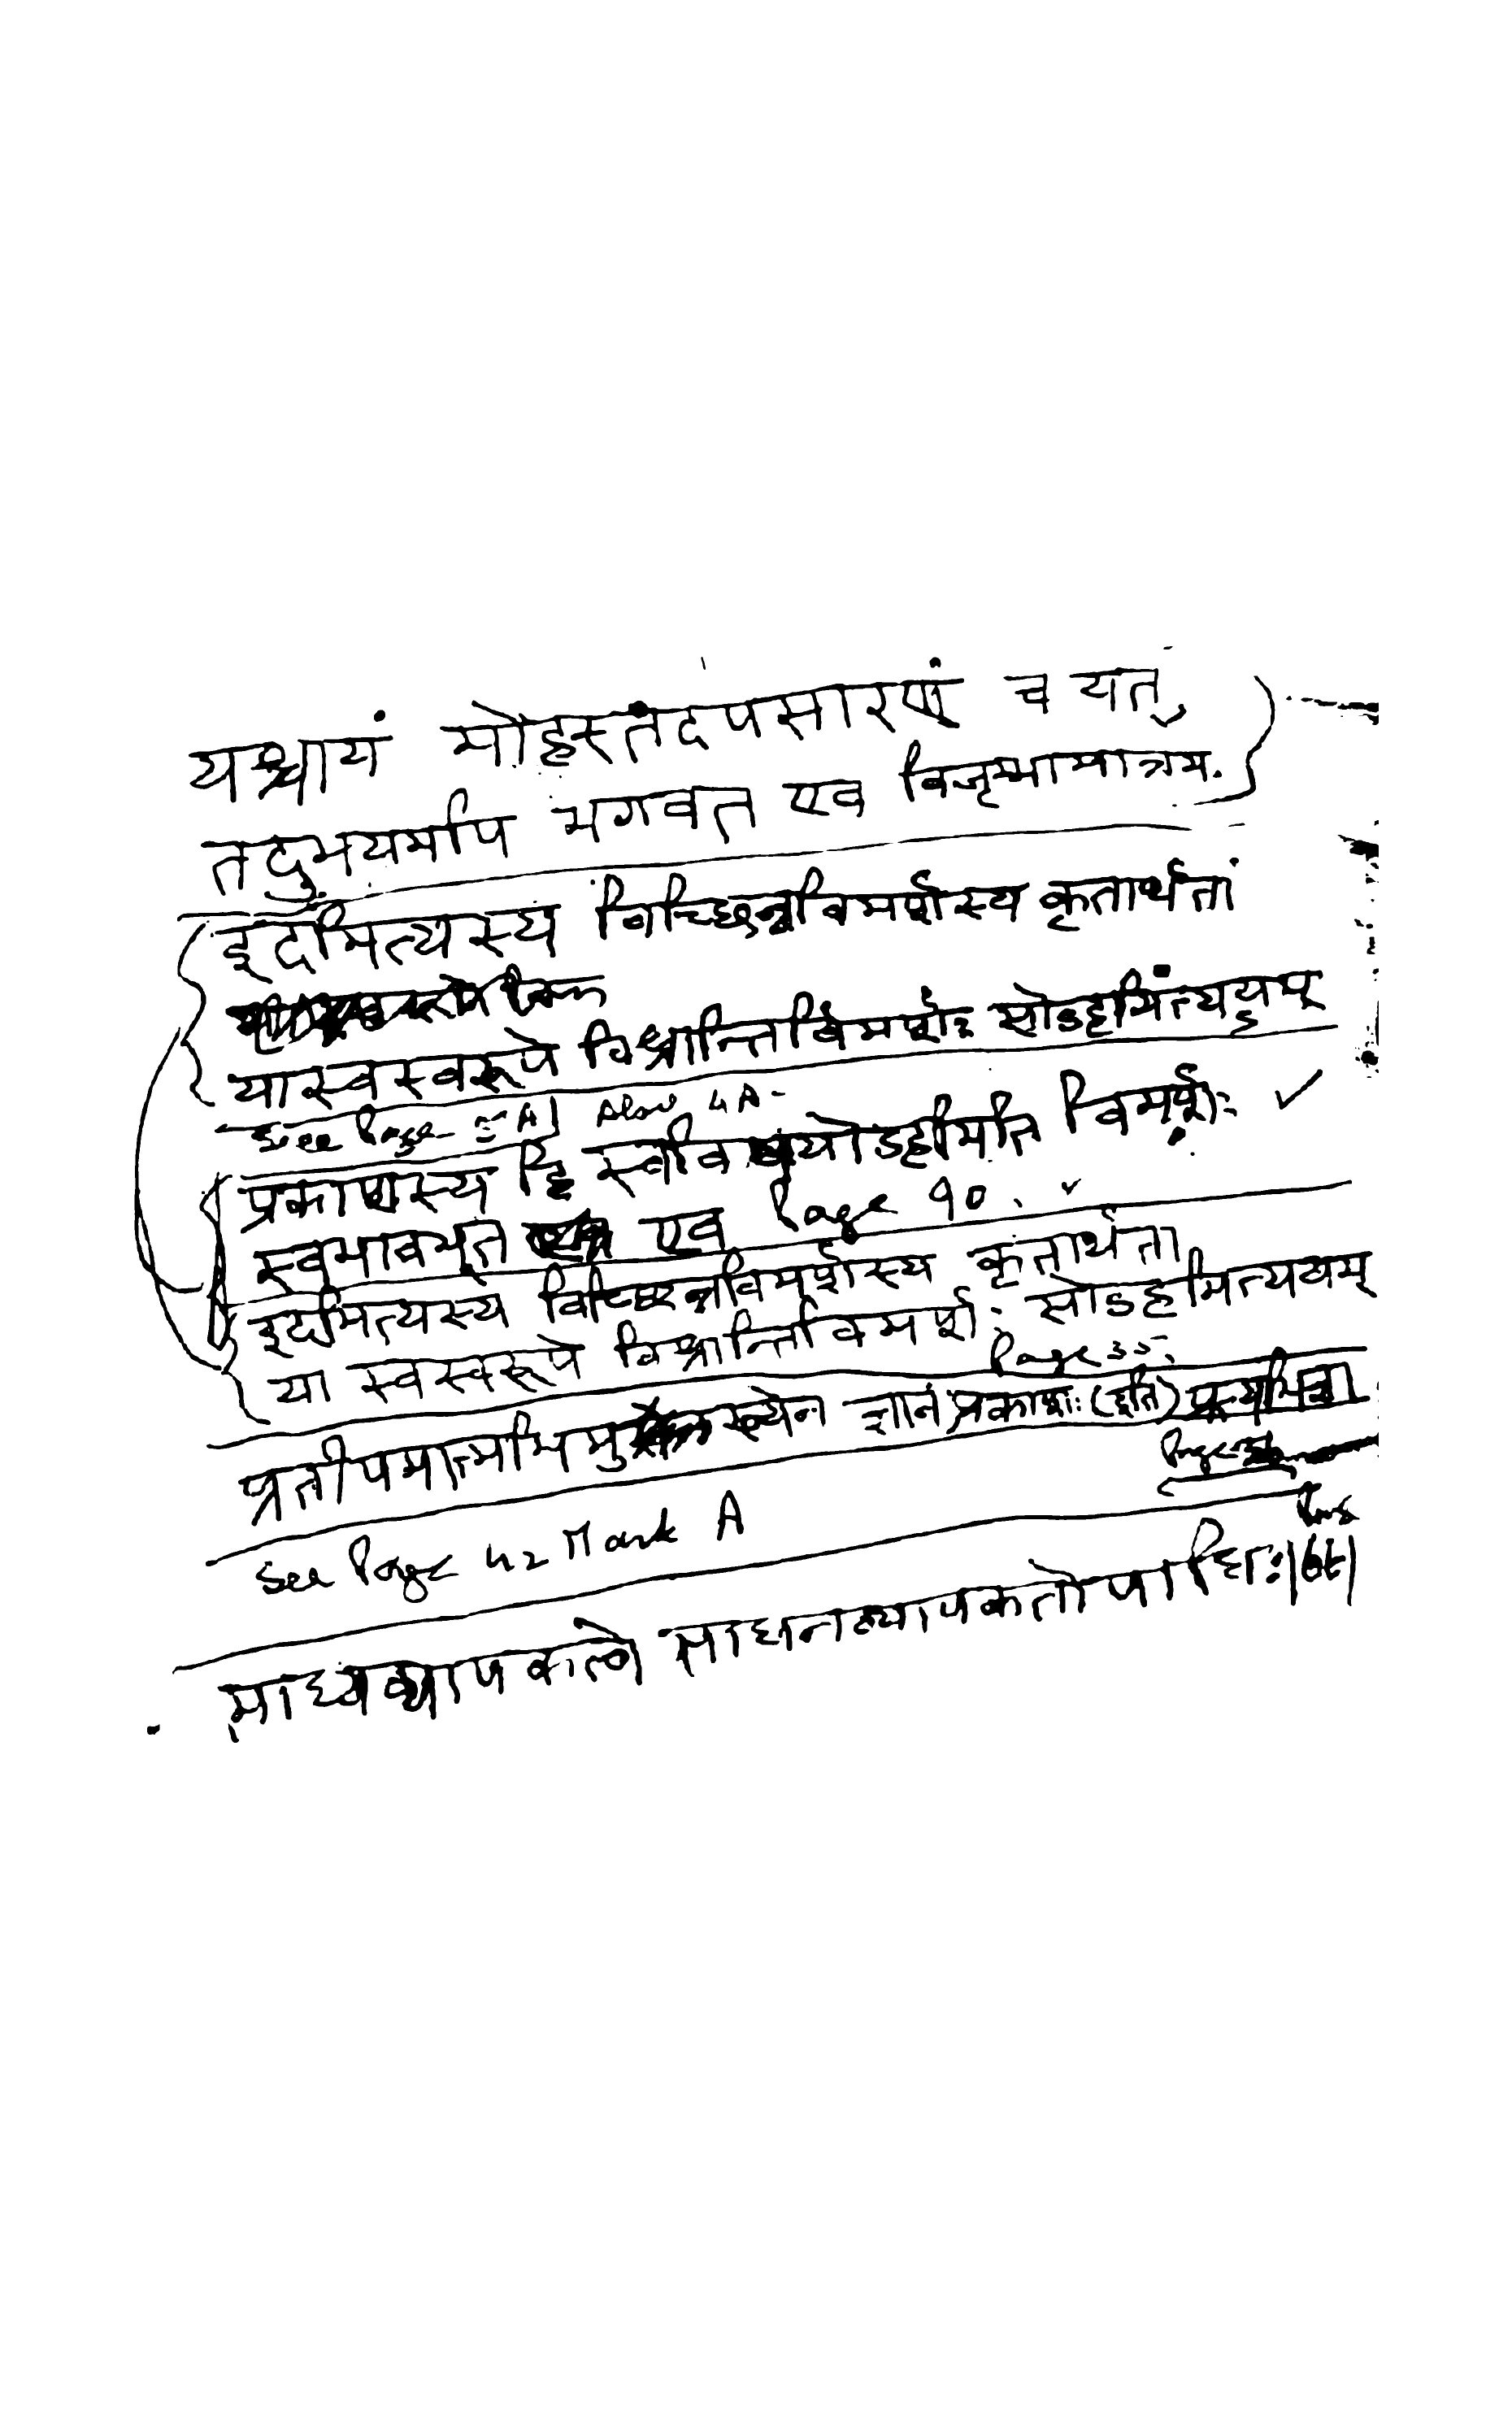 यश्चायं मोहस्तदपसारणं च यत्
तदुभयमपि भगवत एव विजृम्भामात्रम्.
इदमित्यस्य विच्छिन्नविमर्शस्य कृतार्थता
या स्वस्वरूपे विश्रान्तिविमर्शः सोऽहमित्ययम्
See Page A| Also 4A-
प्रकाशस्य हि स्वाव योऽहमिति विमर्शः ✓
स्वभावभूत एव Page 90.
इदमित्यस्य विच्छिन्नविमर्शस्य कृतार्थता
या स्वस्वरूपे विश्रान्तिविमर्शः सोऽहमित्ययम्
Page 35.
प्रतीपमात्माभिमुख्येन ज्ञानं प्रकाशः (इति) प्रत्यभिज्ञा
See Page 42 Mark A
साध्यव्यापकत्वे साधनव्यापकतोपाधिः